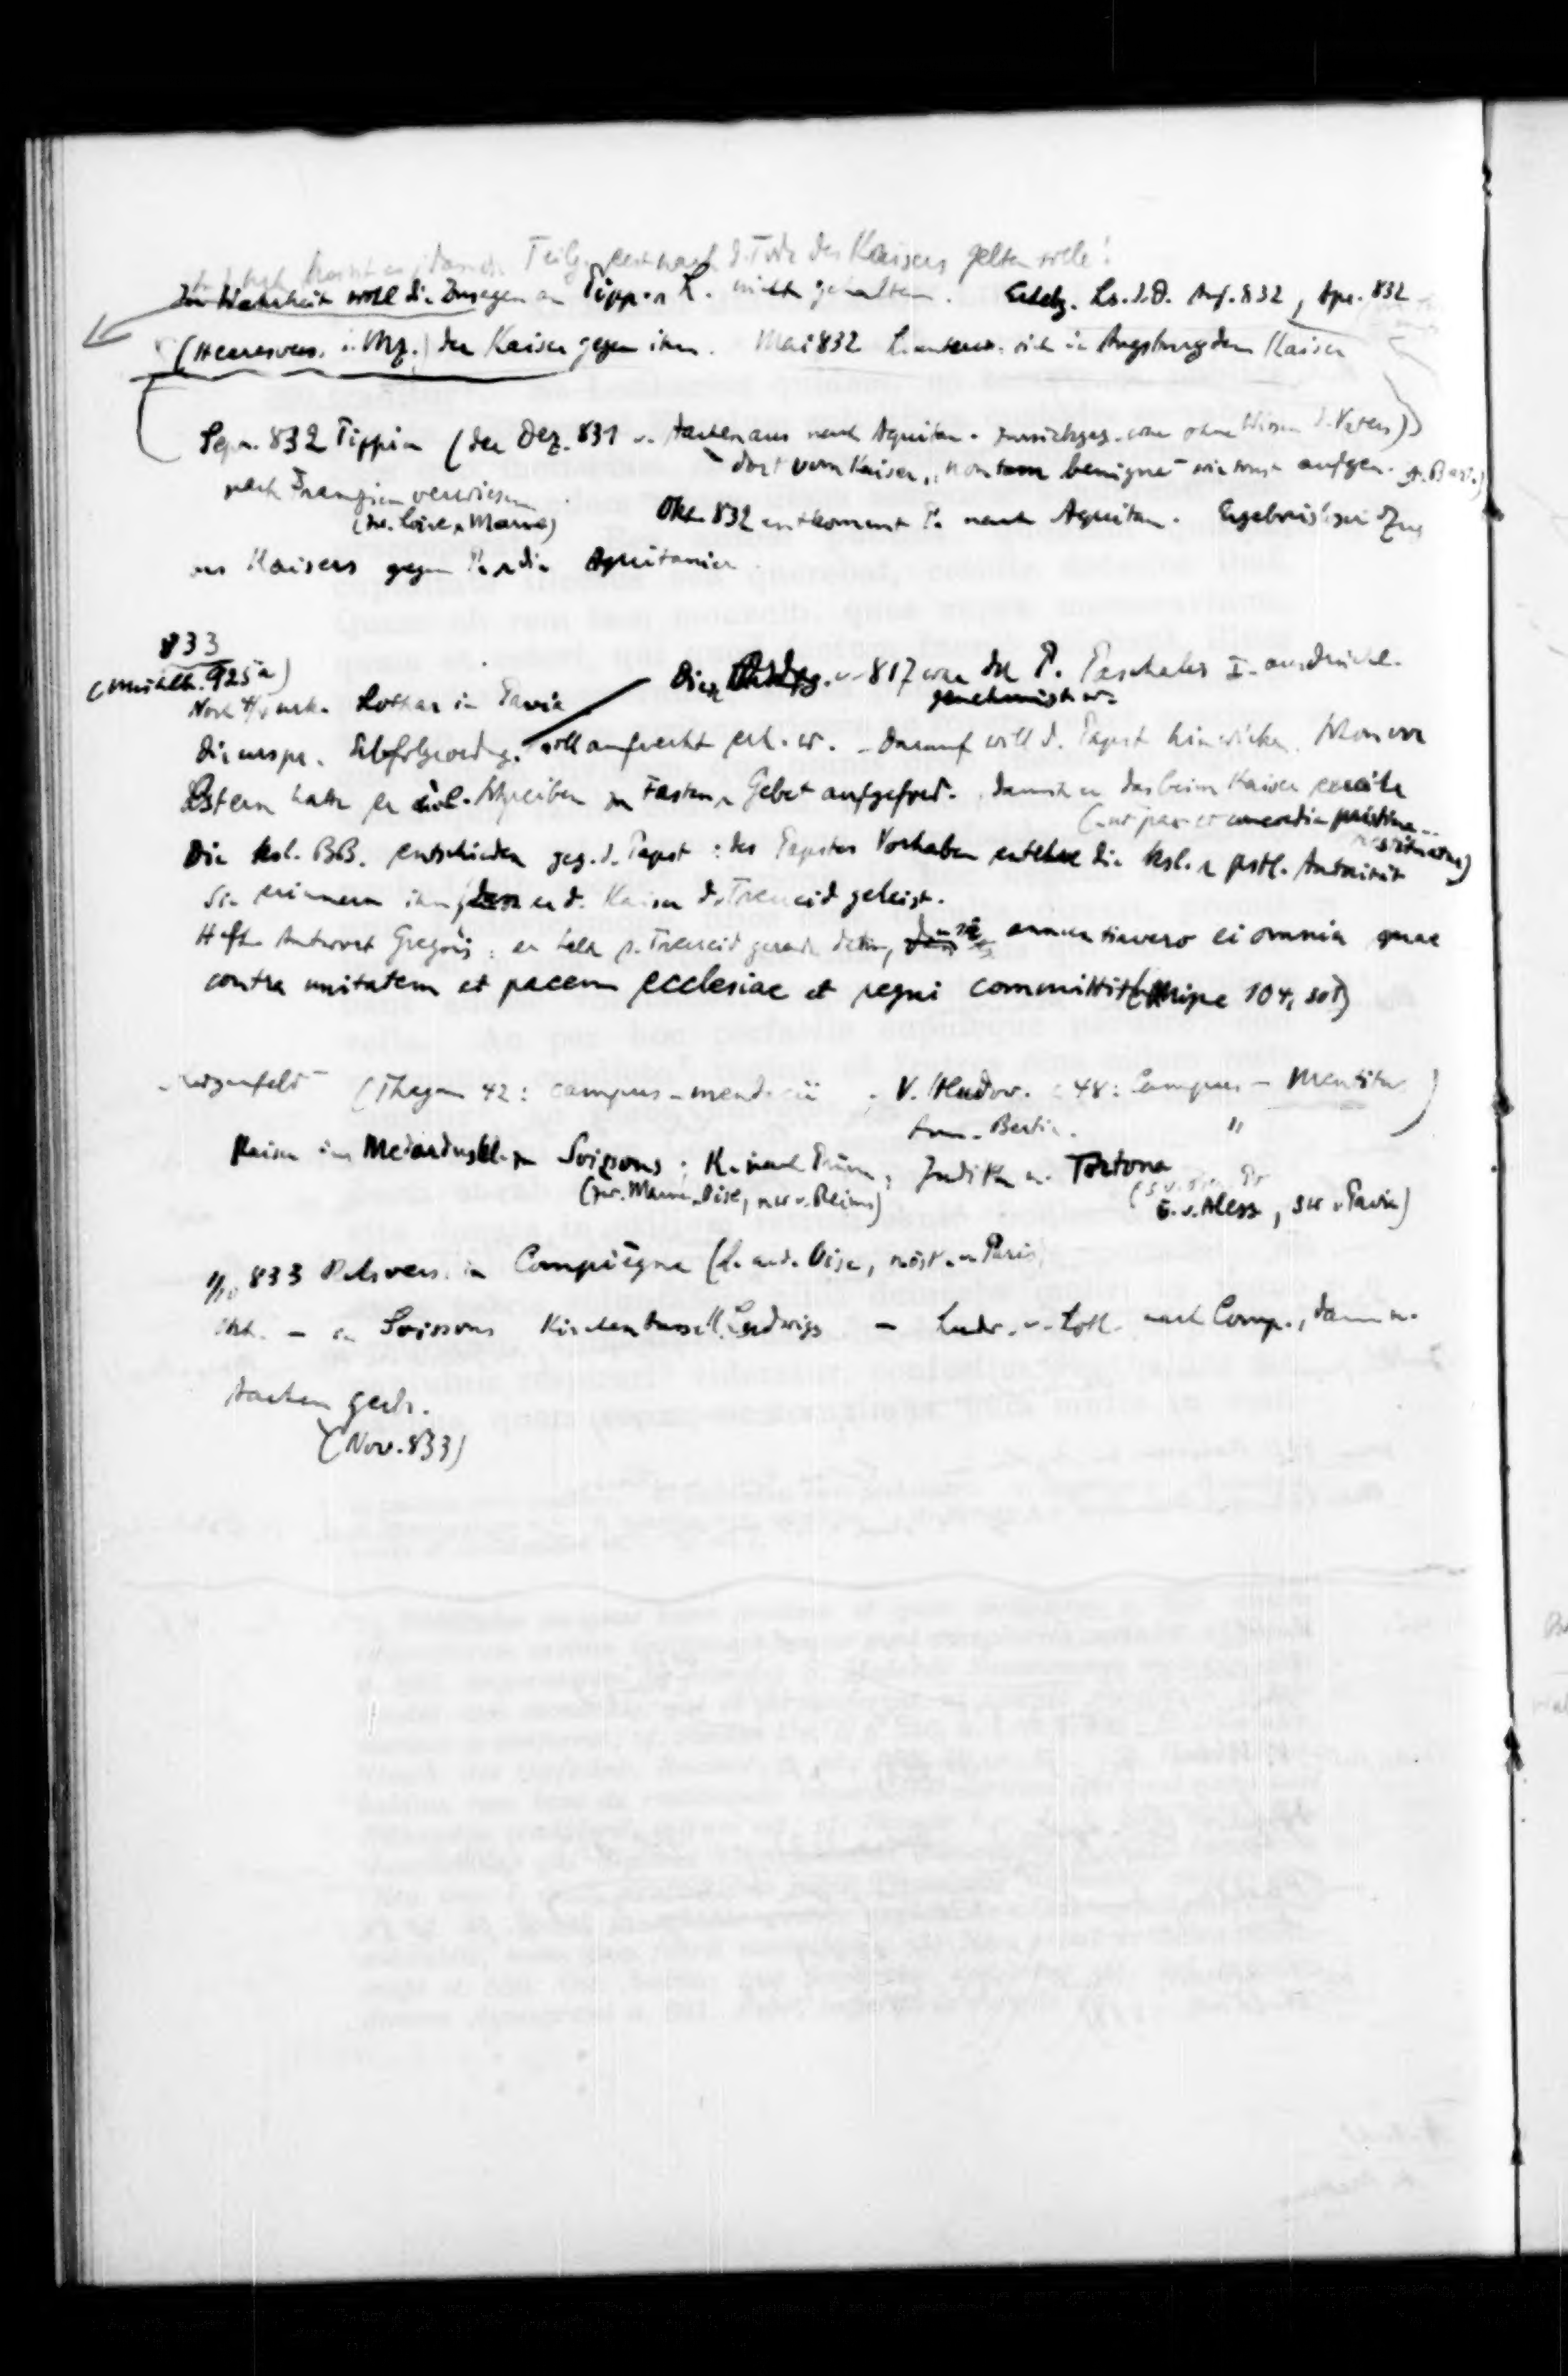 Teilg. erst nach d. Tode des Kaisers gelten solle!
In Wahrheit wohl die Zusagen an Pipp. u. L. nicht gehalten. Erhebg. Ls. d. D. Anf. 832, Apr. 832
(Heeresvers. i. Mz.) der Kaiser gegen ihn. Mai 832 L. unterw. sich in Augsburg dem Kaiser
Sept. 832 Pippin (der Dez. 831 v. Aachen aus nach Aquitan. zurückgeg. war ohne Wissen d. Vaters)
dort vom Kaiser „non tam benigne" wie sonst aufgen.
nach Franzien verwiesen
(zw. Loire u. Marne) Okt. 832 entkommt P. nach Aquitan. Ergebnisloser Zug
des Kaisers gegen P. u. die Aquitanier.
833
(Mühlb. 925a)
Noch urk. Lothar in Pavia Diese v. 817 war der P. Paschalis I. ausdrückl.
genehmigt w.
Die urspr. Erbfolgeordng. soll aufrecht erh. w. – Darauf will d. Papst hinwirken. Schon vor
Ostern hatte er Schreiben zu Fasten u. Gebet aufgeford. damit er das beim Kaiser erreiche
(ut pax et concordia pristina..
Die ksl. BB. entschieden geg. d. Papst: des Papstes Vorhaben entehre die ksl. u. pstl. Autorität
Sie erinnern ihn, dass er d. Kaiser d. Treueid geleist.
Heft. Antwort Gregors: er halte s. Treueid gerade darin, annuntiavero ei omnia quae
contra unitatem et pacem ecclesiae et regni committit (Migne 104, 301)
„Lügenfeld" (Thegan 42: campus-mendacii; V. Hludov. c 48: Campus-Mentitus)
Ann. Bertin. "
Kaiser im Medarduskl. zu Soissons; K. nach Prüm, Judith n. Tortona
(zw. Marne u. Oise, nw v. Reims) (ö. v. Aless, sw v. Pavia)
1/10 833 Rchsvers. in Compiègne (l. an d. Oise, nöstl. v. Paris)
Okt. – in Soissons Kirchenbusse Ludwigs – Ludw. v. Loth. nach Comp., dann n.
Aachen gebr.
(Nov. 833)